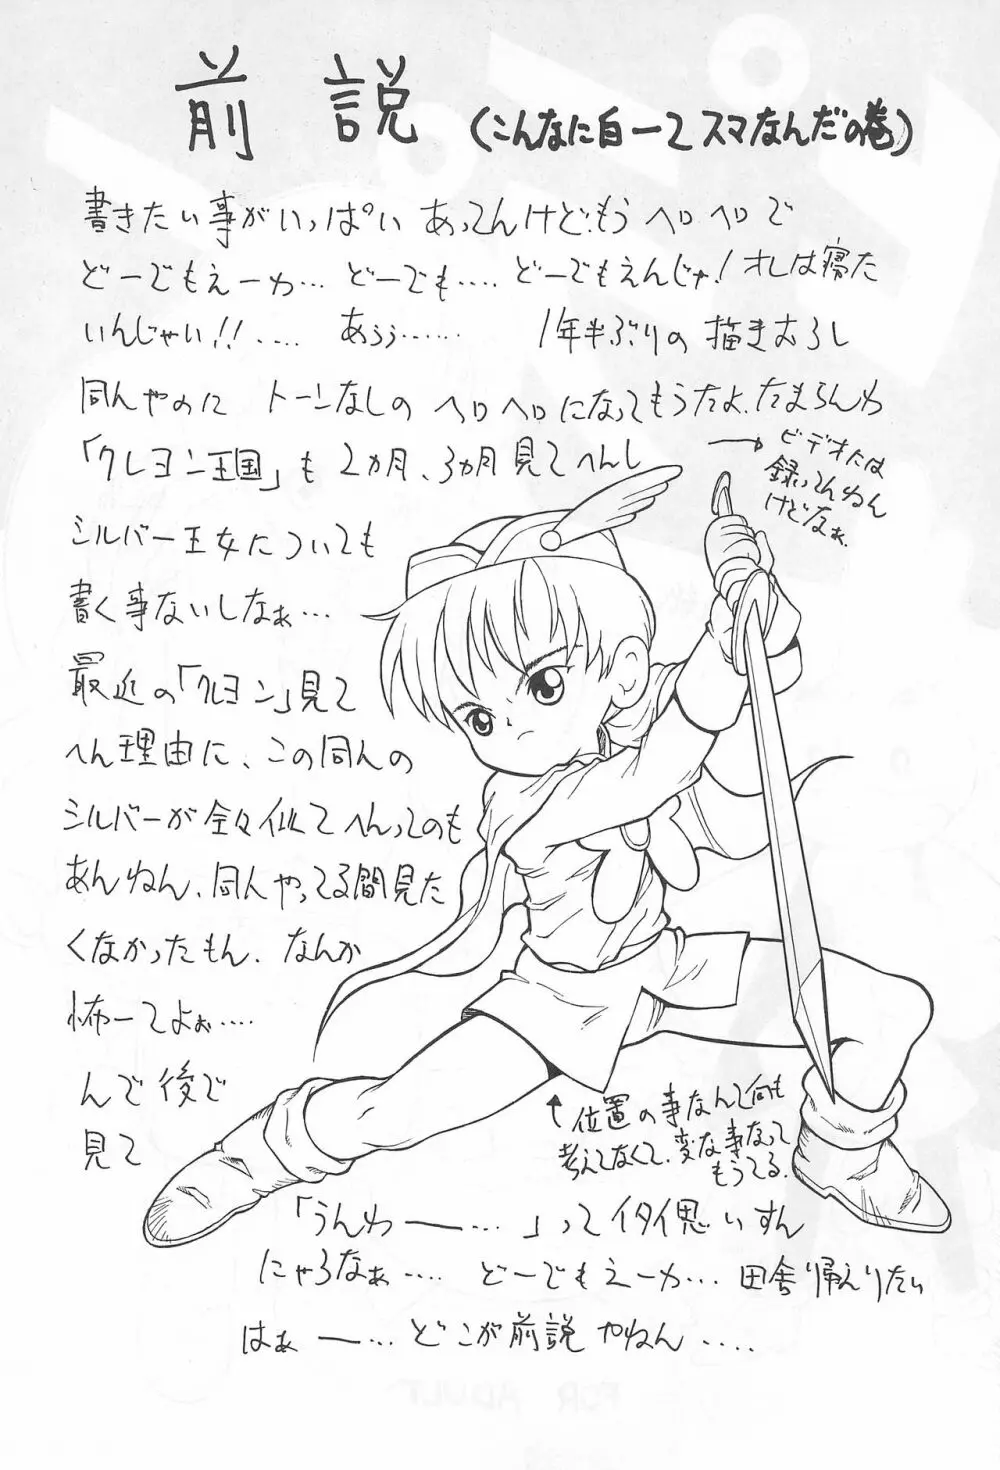 前説 (こんなに白ーてスマなんだの巻)
書きたい事がいっぱいあってんけど、もうヘロヘロで
どーでもえーわ… どーでも…. どーでもえんじゃ!オレは寝た
いんじゃい!!‥‥ あぅぅ…… 1年半ぶりの描きおろし
同人やのに トーンなしの ヘロヘロになってもうたよ、たまらんわ
「クレヨン王国」も2カ月、3カ月見てへんし
→ビデオには
録ってんねん
けどなぁ.
シルバー王女についても
書く事ないしなぁ…
最近の「クレヨン」見て
へん理由に、この同人の
シルバーが全々似てへんってのも
あんねん、同人やってる間見た
くなかったもん、なんか
怖ーてよぉ‥‥
んで後で
見て
↑位置の事なんて何も
考えてなくて、変な事なって
もうてる.
「うんわー…」ってイタイ思いすん
にゃろなぁ‥‥ どーでもえーわ… 田舎帰えりたい
はぁー… どこが前説やねん‥‥
FOR ADULT